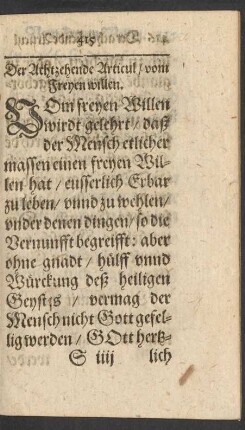 415
Der Achtzehende Articul / vom
Freyen willen.
VOm freyen Willen
wirdt gelehrt / daß
der Mensch etlicher
massen einen freyen Wil-
len hat / eusserlich Erbar
zu leben / vnnd zu wehlen /
vnder denen dingen / so die
Vernunfft begreifft: aber
ohne gnadt / hülff vnnd
Würckung deß heiligen
Geystes / vermag der
Mensch nicht Gott gefel-
lig werden / GOtt hertz-
S iiij lich